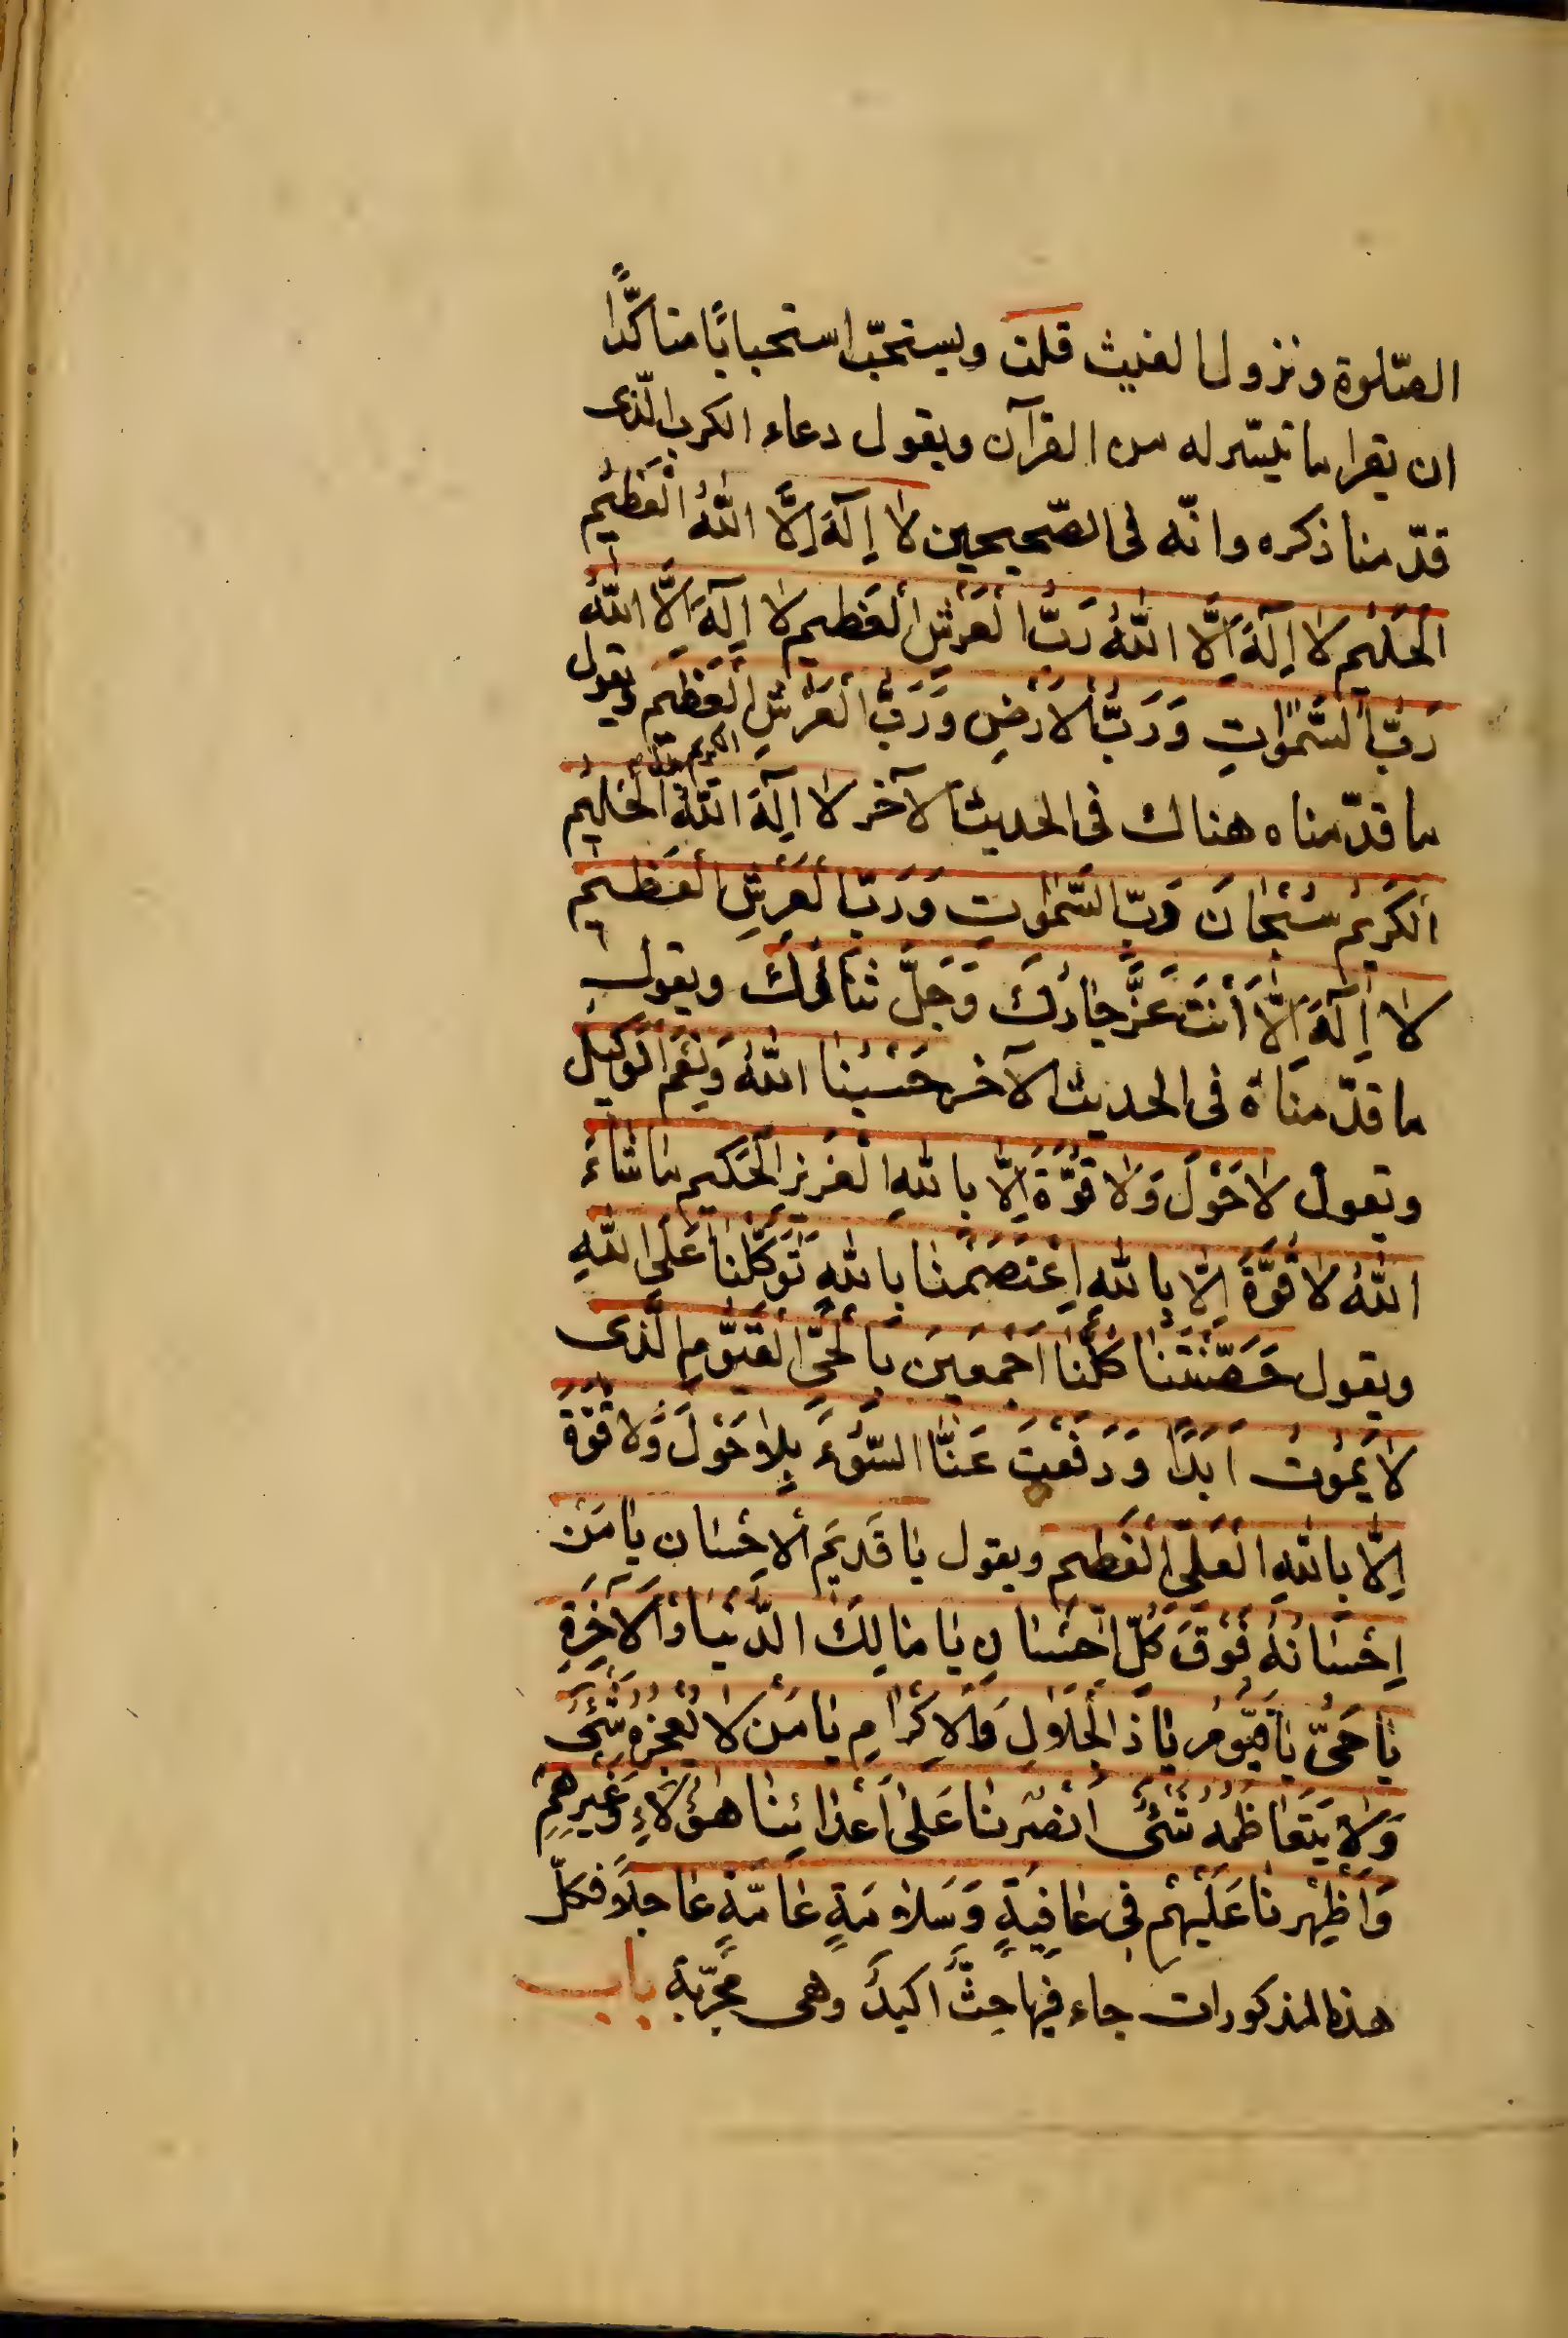 الصّلوة ونزول الغيث قلت ويستحبّ استحبابًا متاكّدًا
ان يقرا ما تيسّر له من القرآن ويقول دعاء الكرب الّذى
قدّمنا ذكره وانّه فى الصّحيحين لا إِلٓهَ إِلَّا اللّٰهُ الْعَظيْم
الْحَليْم لا إِلٓهَ إِلَّا اللّٰهُ رَبُّ الْعَرْشِ الْعَظيم لا إِلٓهَ إِلَّا اللّٰهُ
رَبُّ السَّمٰوٰاتِ وَرَبُّ الْاَرْضِ وَرَبُّ الْعَرْشِ الْعَظيْم ويقول
الكريم
ما قدّمناه هناك فى الحديث الآخر لا إِلٓهَ اللّٰهُ الْحَليْمُ
الْكَريْمُ سُبْحٰانَ رَبِّ السَّمٰوٰتِ وَرَبِّ الْعَرْشِ الْعَظيْم
لا إِلٓهَ إِلَّا أَنْتَ عَزَّ جٰارُكَ وَجَلَّ ثَنٰائُكَ ويقول
ما قدّمناه فى الحديث الآخر حَسْبُنٰا اللّٰهُ وَنِعْمَ الْوَكيْل
ويقول لاحَوْلَ وَلا قُوَّةَ إِلّا باللّٰهِ الْعَزيزِ الْحَكيمِ مٰا شٰاءَ
اللّٰهُ لا قُوَّةَ إِلّا باللّٰهِ اِعْتَصَمْنٰا باللّٰهِ تَوَكَّلْنٰا عَلَى اللّٰهِ
ويقول حَصَّنْتُنٰا كُلَّنٰا اَجْمَعينَ بِالْحَيِّ الْقَيُّومِ الَّذى
لا يَمُوْتُ اَبَدًا وَدَفَعْتُ عَنَّا السُّوْءَ بِلاٰ حَوْلَ وَّلا قُوَّةَ
اِلّا باللّٰهِ الْعَلِيِّ الْعَظيم ويقول يٰا قَديْمَ الْاِحْسٰان يٰا مَنْ
اِحْسٰانُهُ فَوْقَ كُلِّ اِحْسٰانٍ يٰا مٰالِكَ الدُّنْيٰا وَالْآخِرَةِ
يٰا حَيُّ يٰا قَيُّوْمُ يٰا ذَا الْجَلاٰلِ وَالْاِكْرٰامِ يٰا مَنْ لا يُعْجِزُهُ شَيْءٌ
وَلاٰ يَتَعٰاظَمُهُ شَيْءٌ اُنْصُرْنٰا عَلٰى اَعْدٰائِنٰا هٰؤُلاٰءِ وَغَيْرِهِمْ
وَاَظْهِرْنٰا عَلَيْهِمْ فِى عٰافِيَةٍ وَسَلاٰمَةٍ عٰامَّةٍ عٰاجِلًا فكلّ
هذه المذكورات جاء فيها حثٌّ اكيدٌ وهى مجرّبة باب